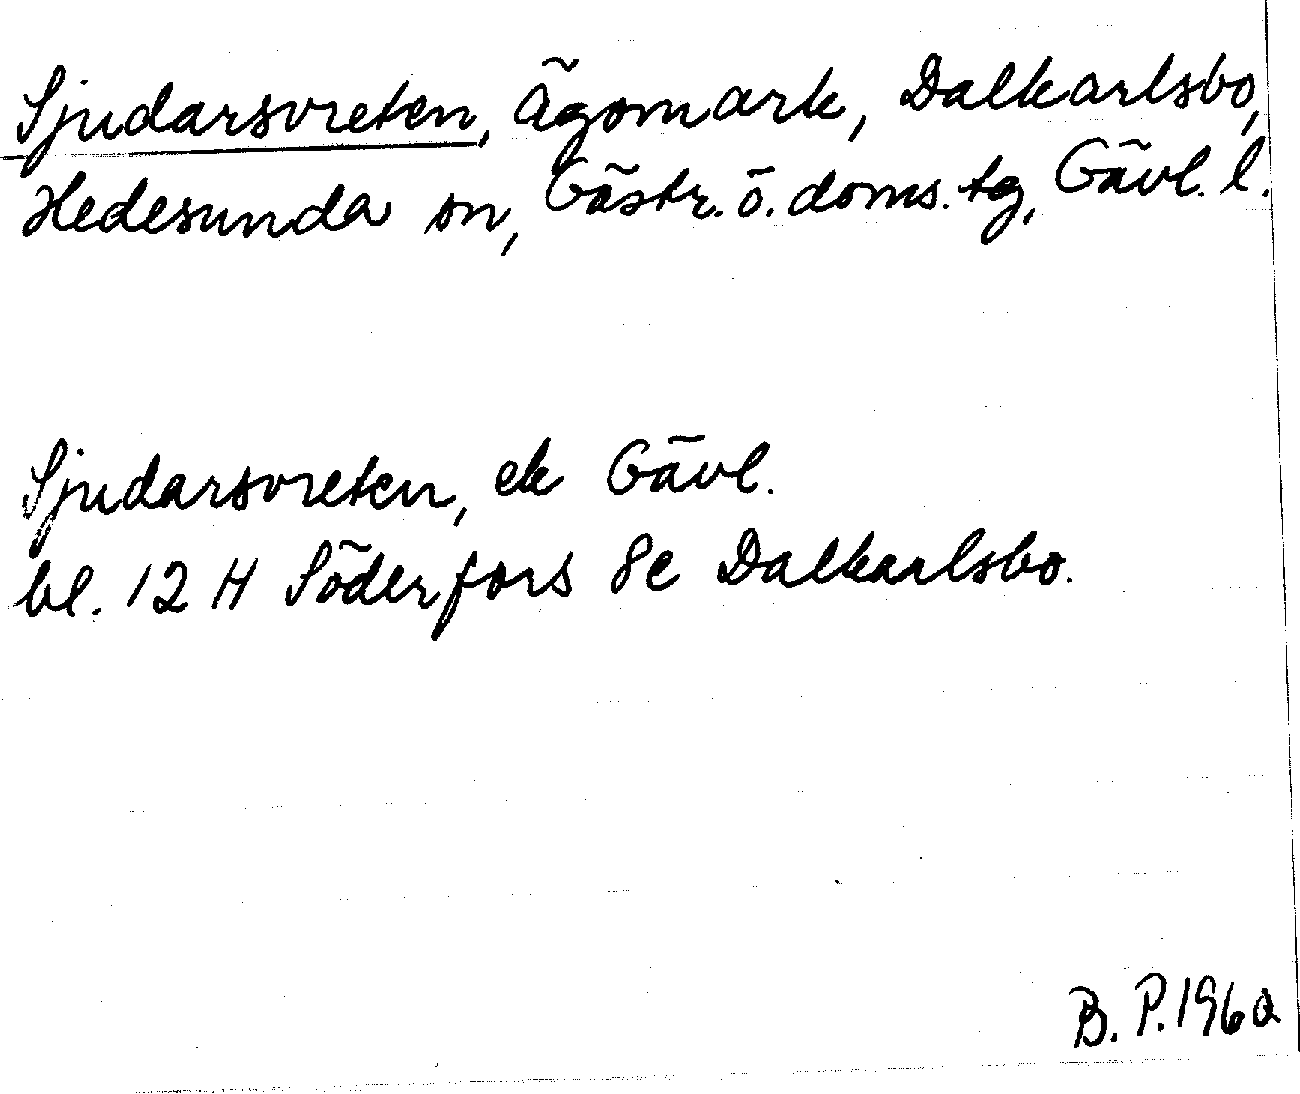 Sjudarsvreten, Ägomark, Dalkarlsbo,
Hedesunda sn, Gästr. ö. doms. tg, Gävl. l.
Sjudarsvreten, ek Gävl.
bl. 12 H Söderfors 8e Dalkarlsbo.
B. P. 1960